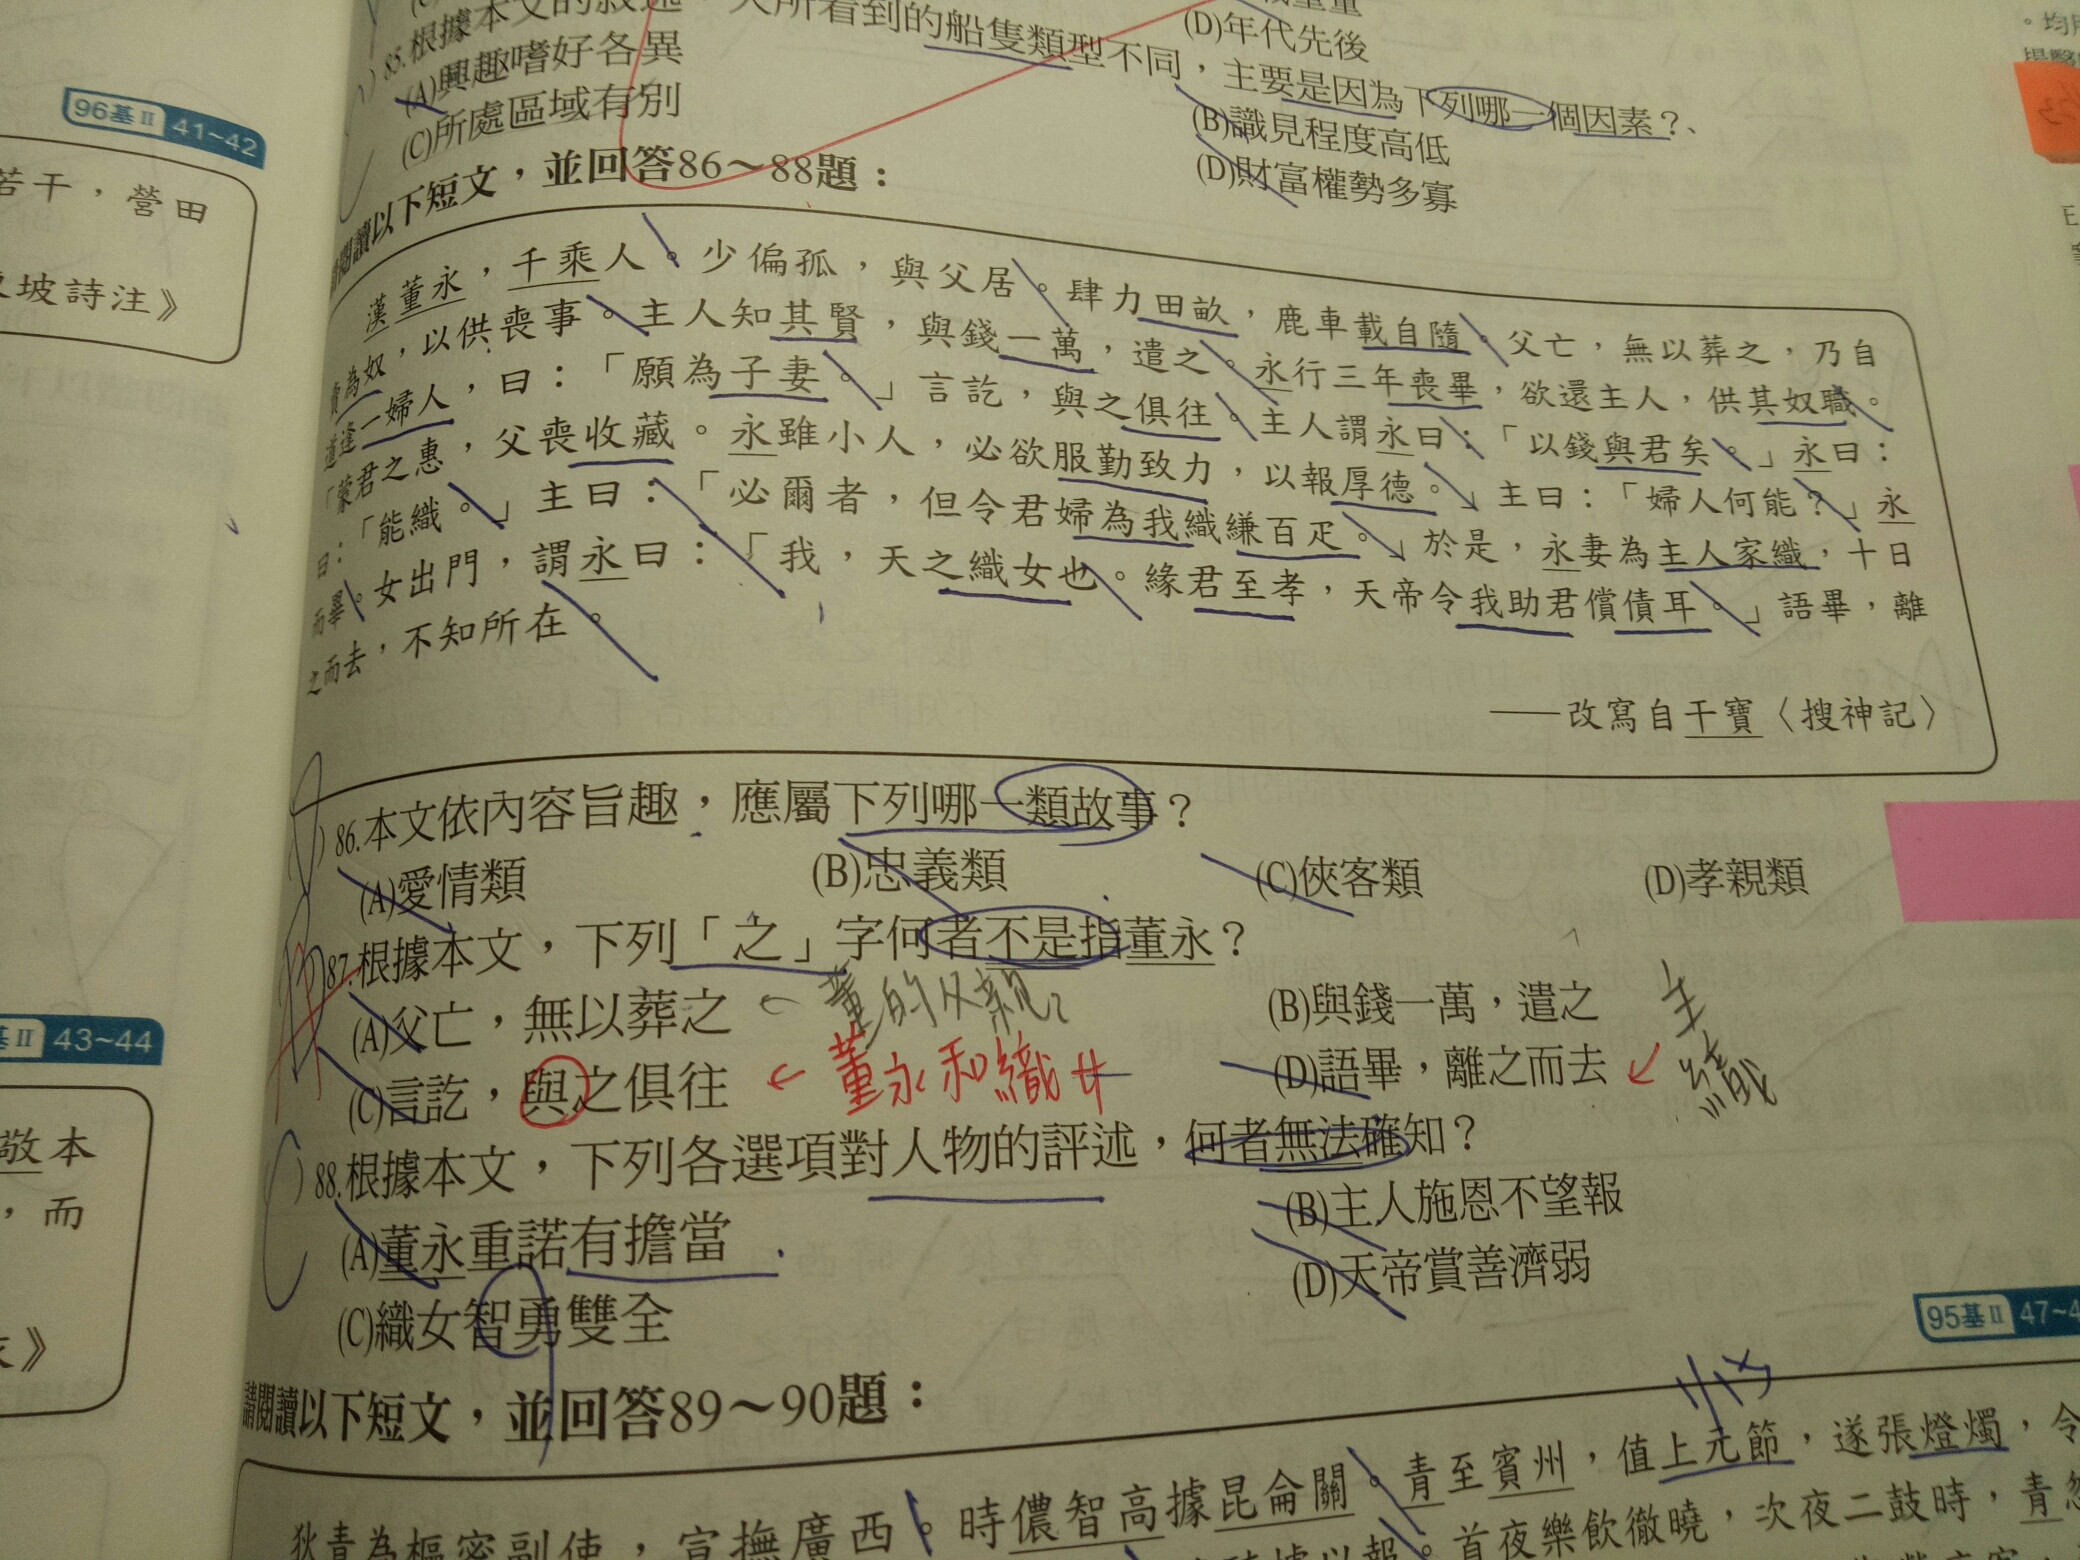 85.根據本文的敘述，
人所看到的船隻類型不同，主要是因為下列哪一個因素？
(D)年代先後
(A)興趣嗜好各異
(B)識見程度高低
(C)所處區域有別
(D)財富權勢多寡
請閱讀以下短文，並回答86～88題：
漢董永，千乘人。少偏孤，與父居。肆力田畝，鹿車載自隨。父亡，無以葬之，乃自
賣為奴，以供喪事。主人知其賢，與錢一萬，遣之。永行三年喪畢，欲還主人，供其奴職。
道逢一婦人，曰：「願為子妻。」言訖，與之俱往。主人謂永曰：「以錢與君矣。」永曰：
「蒙君之惠，父喪收藏。永雖小人，必欲服勤致力，以報厚德。」主曰：「婦人何能？」永
曰：「能織。」主曰：「必爾者，但令君婦為我織縑百疋。」於是，永妻為主人家織，十日
而畢。女出門，謂永曰：「我，天之織女也。緣君至孝，天帝令我助君償債耳。」語畢，離
之而去，不知所在。
——改寫自干寶〈搜神記〉
86.本文依內容旨趣，應屬下列哪一類故事？
(A)愛情類 (B)忠義類 (C)俠客類 (D)孝親類
87.根據本文，下列「之」字何者不是指董永？
董的父親
(A)父亡，無以葬之
(B)與錢一萬，遣之
(C)言訖，與之俱往
董永和織女
(D)語畢，離之而去
88.根據本文，下列各選項對人物的評述，何者無法確知？
(A)董永重諾有擔當
(B)主人施恩不望報
(C)織女智勇雙全
(D)天帝賞善濟弱
請閱讀以下短文，並回答89～90題：
狄青為樞密副使，宣撫廣西。時儂智高據昆侖關。青至賓州，值上元節，遂張燈燭，令
首夜樂飲徹曉，次夜二鼓時，青忽
96基II 41~42
若干，營田
東坡詩注》
基II 43~44
敬本
，而
》
95基II 47~4